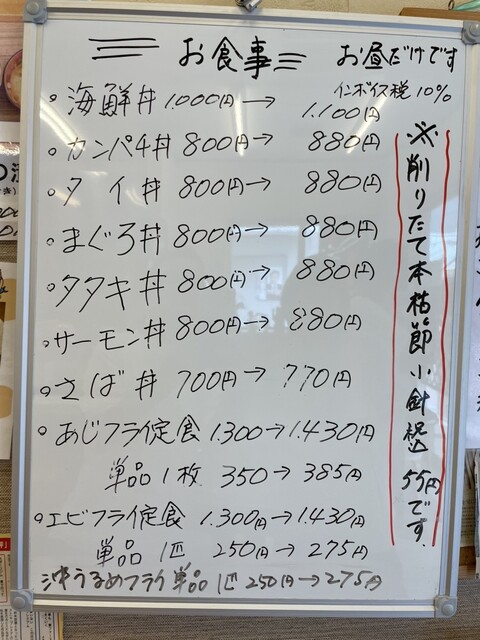 お食事 お昼だけです
インボイス税 10%
。海鮮丼 1.000円→ 1.100円
。カンパチ丼 800円→ 880円
。タイ丼 800円→ 880円
。まぐろ丼 800円→ 880円
。タタキ丼 800円→ 880円
。サーモン丼 800円→ 880円
。さば丼 700円→ 770円
。あじフライ定食 1.300→1.430円
単品1枚 350→385円
。エビフライ定食 1.300円→1.430円
単品 1匹 250円→275円
沖うるめフライ単品 1匹 250円→275円
※削りたて本枯節小鉢税込55円です。